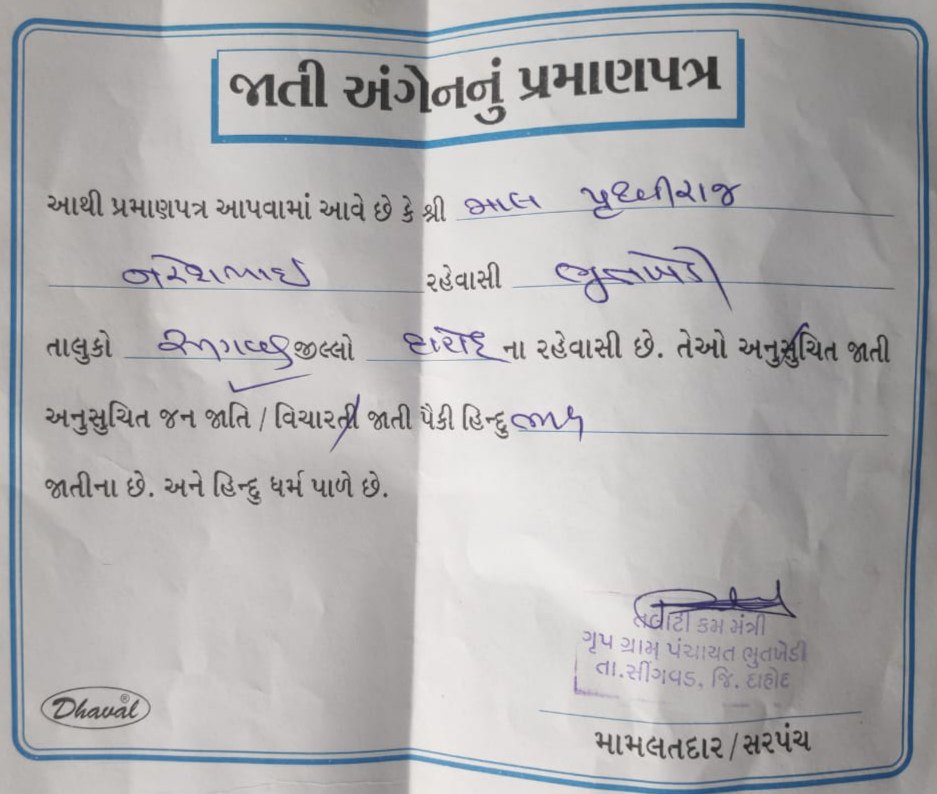 જાતી અંગેનનું પ્રમાણપત્ર
આથી પ્રમાણપત્ર આપવામાં આવે છે કે શ્રી માલ પૃથ્વીરાજ
નરેશભાઇ રહેવાસી ભુતખેડી
તાલુકો સીંગવડ જીલ્લો દાહોદ ના રહેવાસી છે. તેઓ અનુસુચિત જાતી
અનુસુચિત જન જાતિ / વિચારતી જાતી પૈકી હિન્દુ
જાતીના છે. અને હિન્દુ ધર્મ પાળે છે.
તલાટી કમ મંત્રી
ગૃપ ગ્રામ પંચાયત ભુતખેડી
તા.સીંગવડ, જિ. દાહોદ
Dhaval®
મામલતદાર / સરપંચ